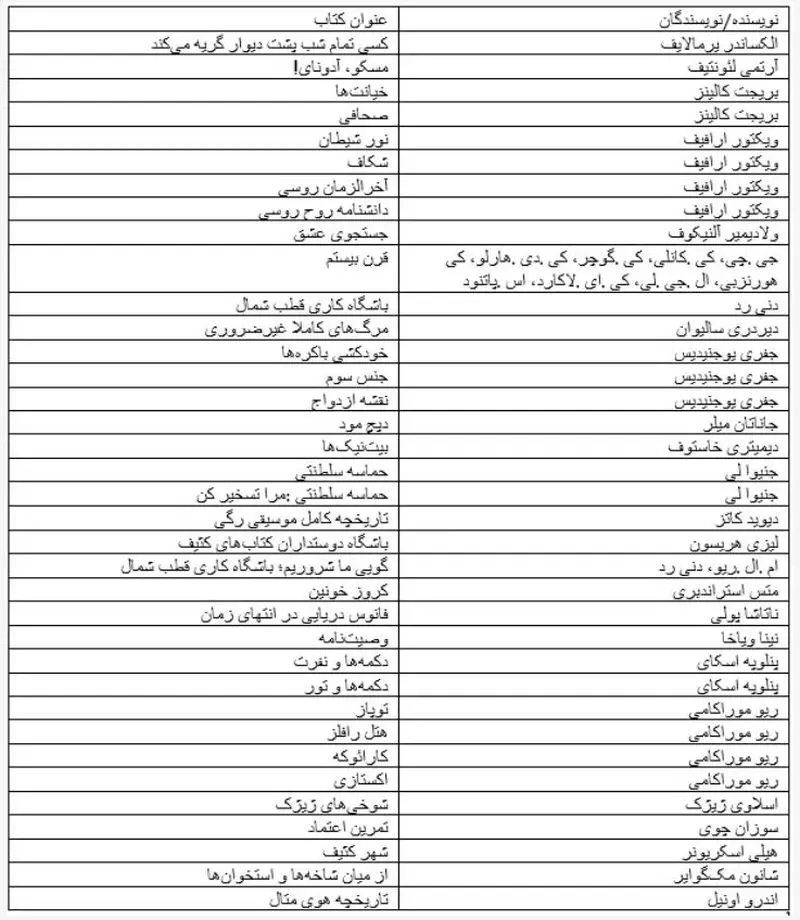 نویسنده/نویسندگان عنوان کتاب
الکساندر یرمالایف کسی تمام شب پشت دیوار گریه می‌کند
آرتمی لئونتیف مسکو، آدونای!
بریجت کالینز خیانت‌ها
بریجت کالینز صحافی
ویکتور ارافیف نور شیطان
ویکتور ارافیف شکاف
ویکتور ارافیف آخرالزمان روسی
ویکتور ارافیف دانشنامه روح روسی
ولادیمیر آلنیکوف جستجوی عشق
جی .چی، کی .کانلی، کی .گوچر، کی .دی .هارلو، کی قرن بیستم
هورنزبی، ال .جی .لی، کی .ای .لاکارد، اس .پاتنود
دنی رد باشگاه کاری قطب شمال
دیردری سالیوان مرگ‌های کاملا غیرضروری
جفری یوجنیدیس خودکشی باکره‌ها
جفری یوجنیدیس جنس سوم
جفری یوجنیدیس نقشه ازدواج
جاناتان میلر دیپ مود
دیمیتری خاستوف بیت‌نیک‌ها
جنیوا لی حماسه سلطنتی
جنیوا لی حماسه سلطنتی :مرا تسخیر کن
دیوید کاتز تاریخچه کامل موسیقی رگی
لیزی هریسون باشگاه دوستداران کتاب‌های کثیف
ام .ال .ریو، دنی رد گویی ما شروریم؛ باشگاه کاری قطب شمال
متس استراندبری کروز خونین
ناتاشا پولی فانوس دریایی در انتهای زمان
نینا ویاخا وصیت‌نامه
پنلوپه اسکای دکمه‌ها و نفرت
پنلوپه اسکای دکمه‌ها و تور
ریو موراکامی توپاز
ریو موراکامی هتل رافلز
ریو موراکامی کارائوکه
ریو موراکامی اکستازی
اسلاوی ژیژک شوخی‌های ژیژک
سوزان چوی تمرین اعتماد
هیلی اسکریونر شهر کثیف
شانون مک‌گوایر از میان شاخه‌ها و استخوان‌ها
اندرو اونیل تاریخچه هوی متال